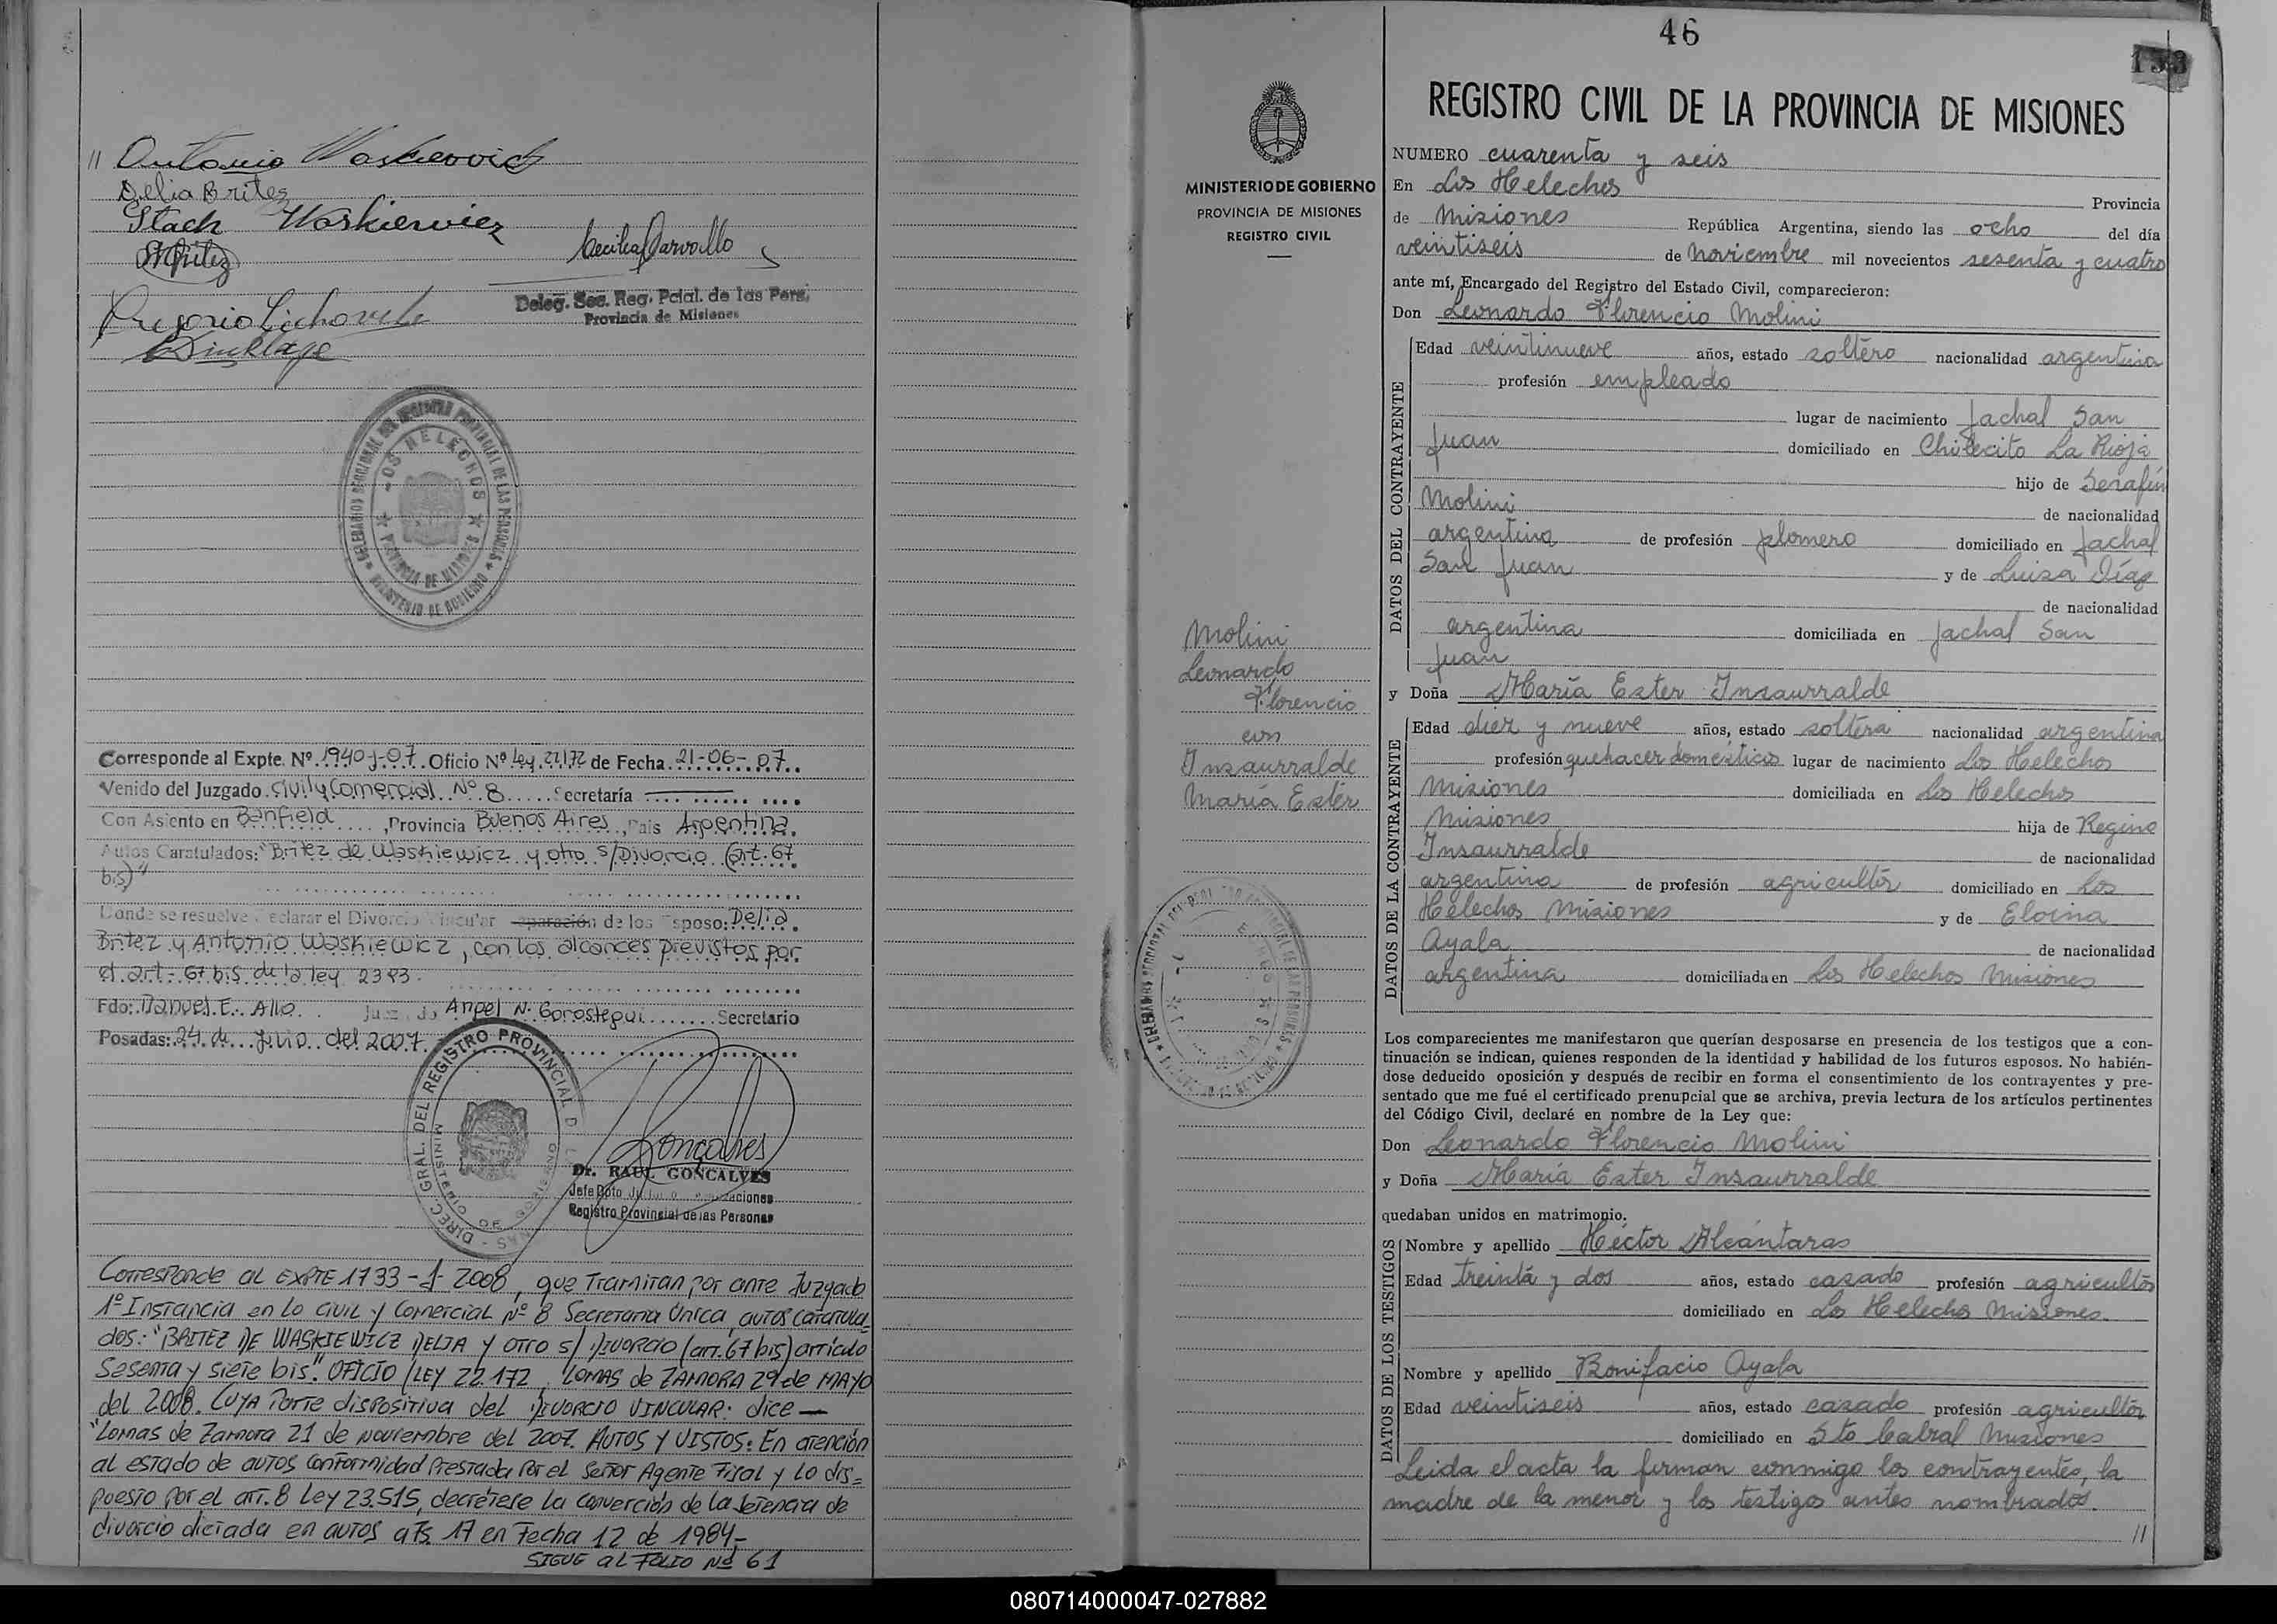 // Antonio Waskievich
Delia Britez
Stach Waskiewicz
SBritez
Cecilia Carvallo
Deleg. Sec. Reg. Pcial. de las Pers.
Provincia de Misiones
Gregorio
DELEGACION SECCIONAL DEL REGISTRO PROVINCIAL DE LAS PERSONAS
LOS HELECHOS
PROVINCIA DE MISIONES
MINISTERIO DE GOBIERNO
Corresponde al Expte. Nº 1940-J-07. Oficio Nº Ley 22172 de Fecha 21-06-07
Venido del Juzgado Civil y Comercial Nº 8 Secretaría
Con Asiento en Banfield, Provincia Buenos Aires, Pais Argentina.
Autos Caratulados: "Britez de Waskiewicz y otro s/Divorcio (art. 67
bis)"
Donde se resuelve Declarar el Divorcio Vincular Separación de los Esposo: Delia
Britez y Antonio Waskiewicz, con los alcances previstos por
el art- 67 bis de la ley 2393.
Fdo: Manuel E. Allo. Juzgado Angel N. Gorostegui Secretario
Posadas: 24 de Julio del 2007.
DIREC. GRAL. DEL REGISTRO PROVINCIAL DE LAS PERSONAS
MINISTERIO DE GOBIERNO
Goncalves
Dr. RAUL GONCALVES
Jefe Dpto
Registro Provincial de las Personas
Corresponde al EXPTE 1733-J-2008, que Tramitan por ante Juzgado
1º Instancia en Lo Civil y Comercial Nº 8 Secretaria Única, autos caratula-
dos: "BRITEZ DE WASKIEWICZ DELIA Y OTRO S/ DIVORCIO (art. 67 bis) artículo
Sesenta y siete bis". OFICIO LEY 22.172, LOMAS de ZAMORA 29 de MAYO
del 2008. CUYA Parte dispositiva del DIVORCIO VINCULAR: dice —
"Lomas de Zamora 21 de noviembre del 2007. AUTOS Y VISTOS: En atención
al estado de autos conformidad Prestada Por el Señor Agente Fiscal y Lo dis=
puesto por el art. 8 Ley 23.515, decrétese la converción de la setencia de
divorcio dictada en autos a Fs. 17 en Fecha 12 de 1984-
SIGUE al FOLIO Nº 61
46
153
MINISTERIO DE GOBIERNO
PROVINCIA DE MISIONES
REGISTRO CIVIL
Molini
Leonardo
Florencio
con
Insaurralde
María Ester
REGISTRO CIVIL DE LA PROVINCIA DE MISIONES
NUMERO cuarenta y seis
En Los Helechos Provincia
de Misiones República Argentina, siendo las ocho del día
veintiseis de Noviembre mil novecientos sesenta y cuatro
ante mí, Encargado del Registro del Estado Civil, comparecieron:
Don Leonardo Florencio Molini
DATOS DEL CONTRAYENTE
Edad veintinueve años, estado soltero nacionalidad argentina
profesión empleado
lugar de nacimiento Jachal San
Juan domiciliado en Chilecito La Rioja
hijo de Serafín
Molini de nacionalidad
argentina de profesión plomero domiciliado en Jachal
San Juan y de Luisa Díaz
de nacionalidad
argentina domiciliada en Jachal San
Juan
y Doña María Ester Insaurralde
DATOS DE LA CONTRAYENTE
Edad diez y nueve años, estado soltera nacionalidad argentina
profesión quehacer domésticos lugar de nacimiento Los Helechos
Misiones domiciliada en Los Helechos
Misiones hija de Regino
Insaurralde de nacionalidad
argentina de profesión agricultor domiciliado en Los
Helechos Misiones y de Eloina
Ayala de nacionalidad
argentina domiciliada en Los Helechos Misiones
Los comparecientes me manifestaron que querían desposarse en presencia de los testigos que a con-
tinuación se indican, quienes responden de la identidad y habilidad de los futuros esposos. No habién-
dose deducido oposición y después de recibir en forma el consentimiento de los contrayentes y pre-
sentado que me fué el certificado prenupcial que se archiva, previa lectura de los artículos pertinentes
del Código Civil, declaré en nombre de la Ley que:
Don Leonardo Florencio Molini
y Doña María Ester Insaurralde
quedaban unidos en matrimonio.
DATOS DE LOS TESTIGOS
Nombre y apellido Héctor Alcántaras
Edad treinta y dos años, estado casado profesión agricultor
domiciliado en Los Helechos Misiones.
Nombre y apellido Bonifacio Ayala
Edad veintiseis años, estado casado profesión agricultor
domiciliado en Sto Cabral Misiones
Leida el acta la firman conmigo los contrayentes, la
madre de la menor y los testigos antes nombrados.
//
080714000047-027882